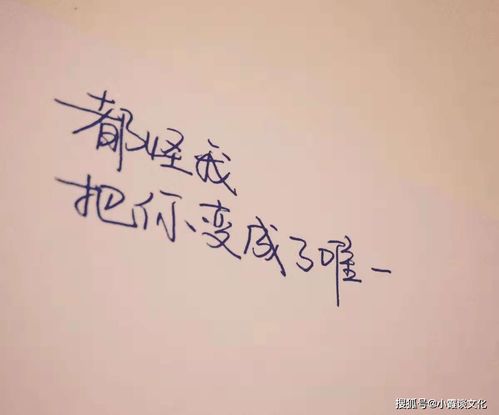 都怪我
把你变成了唯一
搜狐号@小覆谈文化